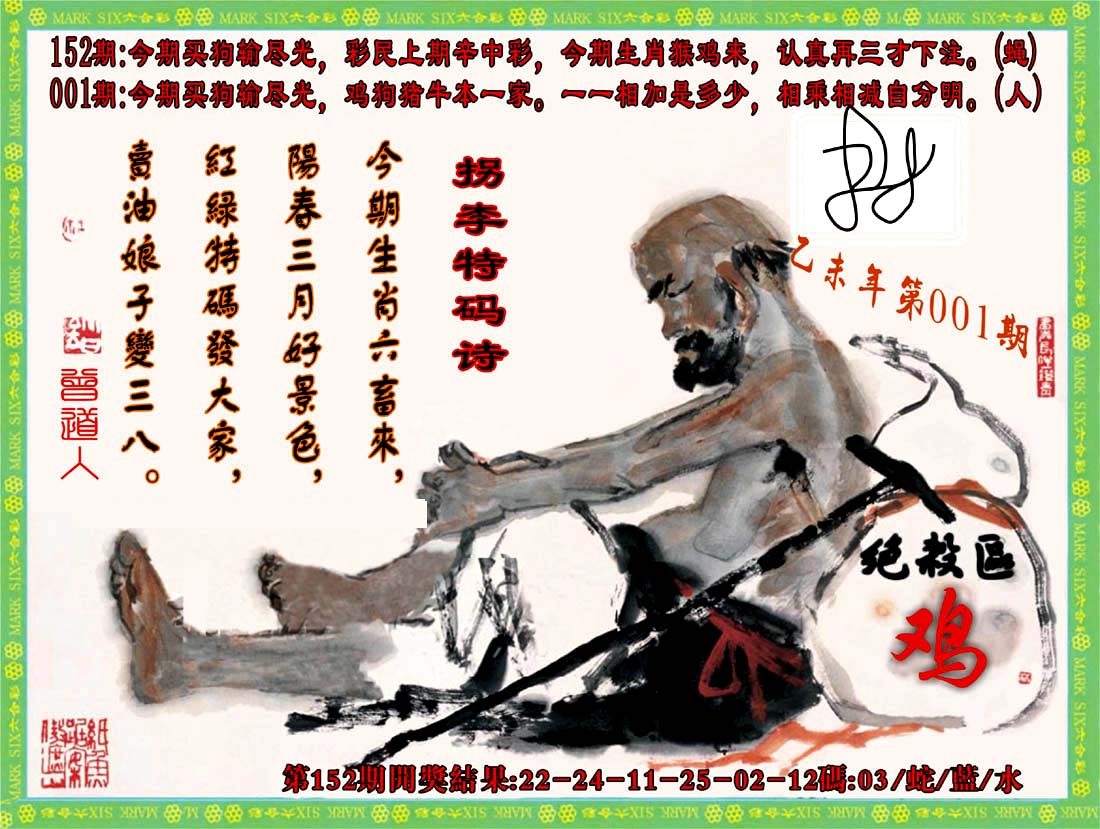 MARK SIX六合彩
152期:今期买狗输尽光，彩民上期辛中彩，今期生肖猴鸡来，认真再三才下注。(蝇)
001期:今期买狗输尽光，鸡狗猪牛本一家。一一相加是多少，相乘相减自分明。(人)
拐李特码诗
今期生肖六畜來，
陽春三月好景色，
紅緑特碼發大家，
賣油娘子變三八。
曾道人
乙未年第001期
绝殺區
鸡
第152期開獎結果:22-24-11-25-02-12碼:03/蛇/藍/水